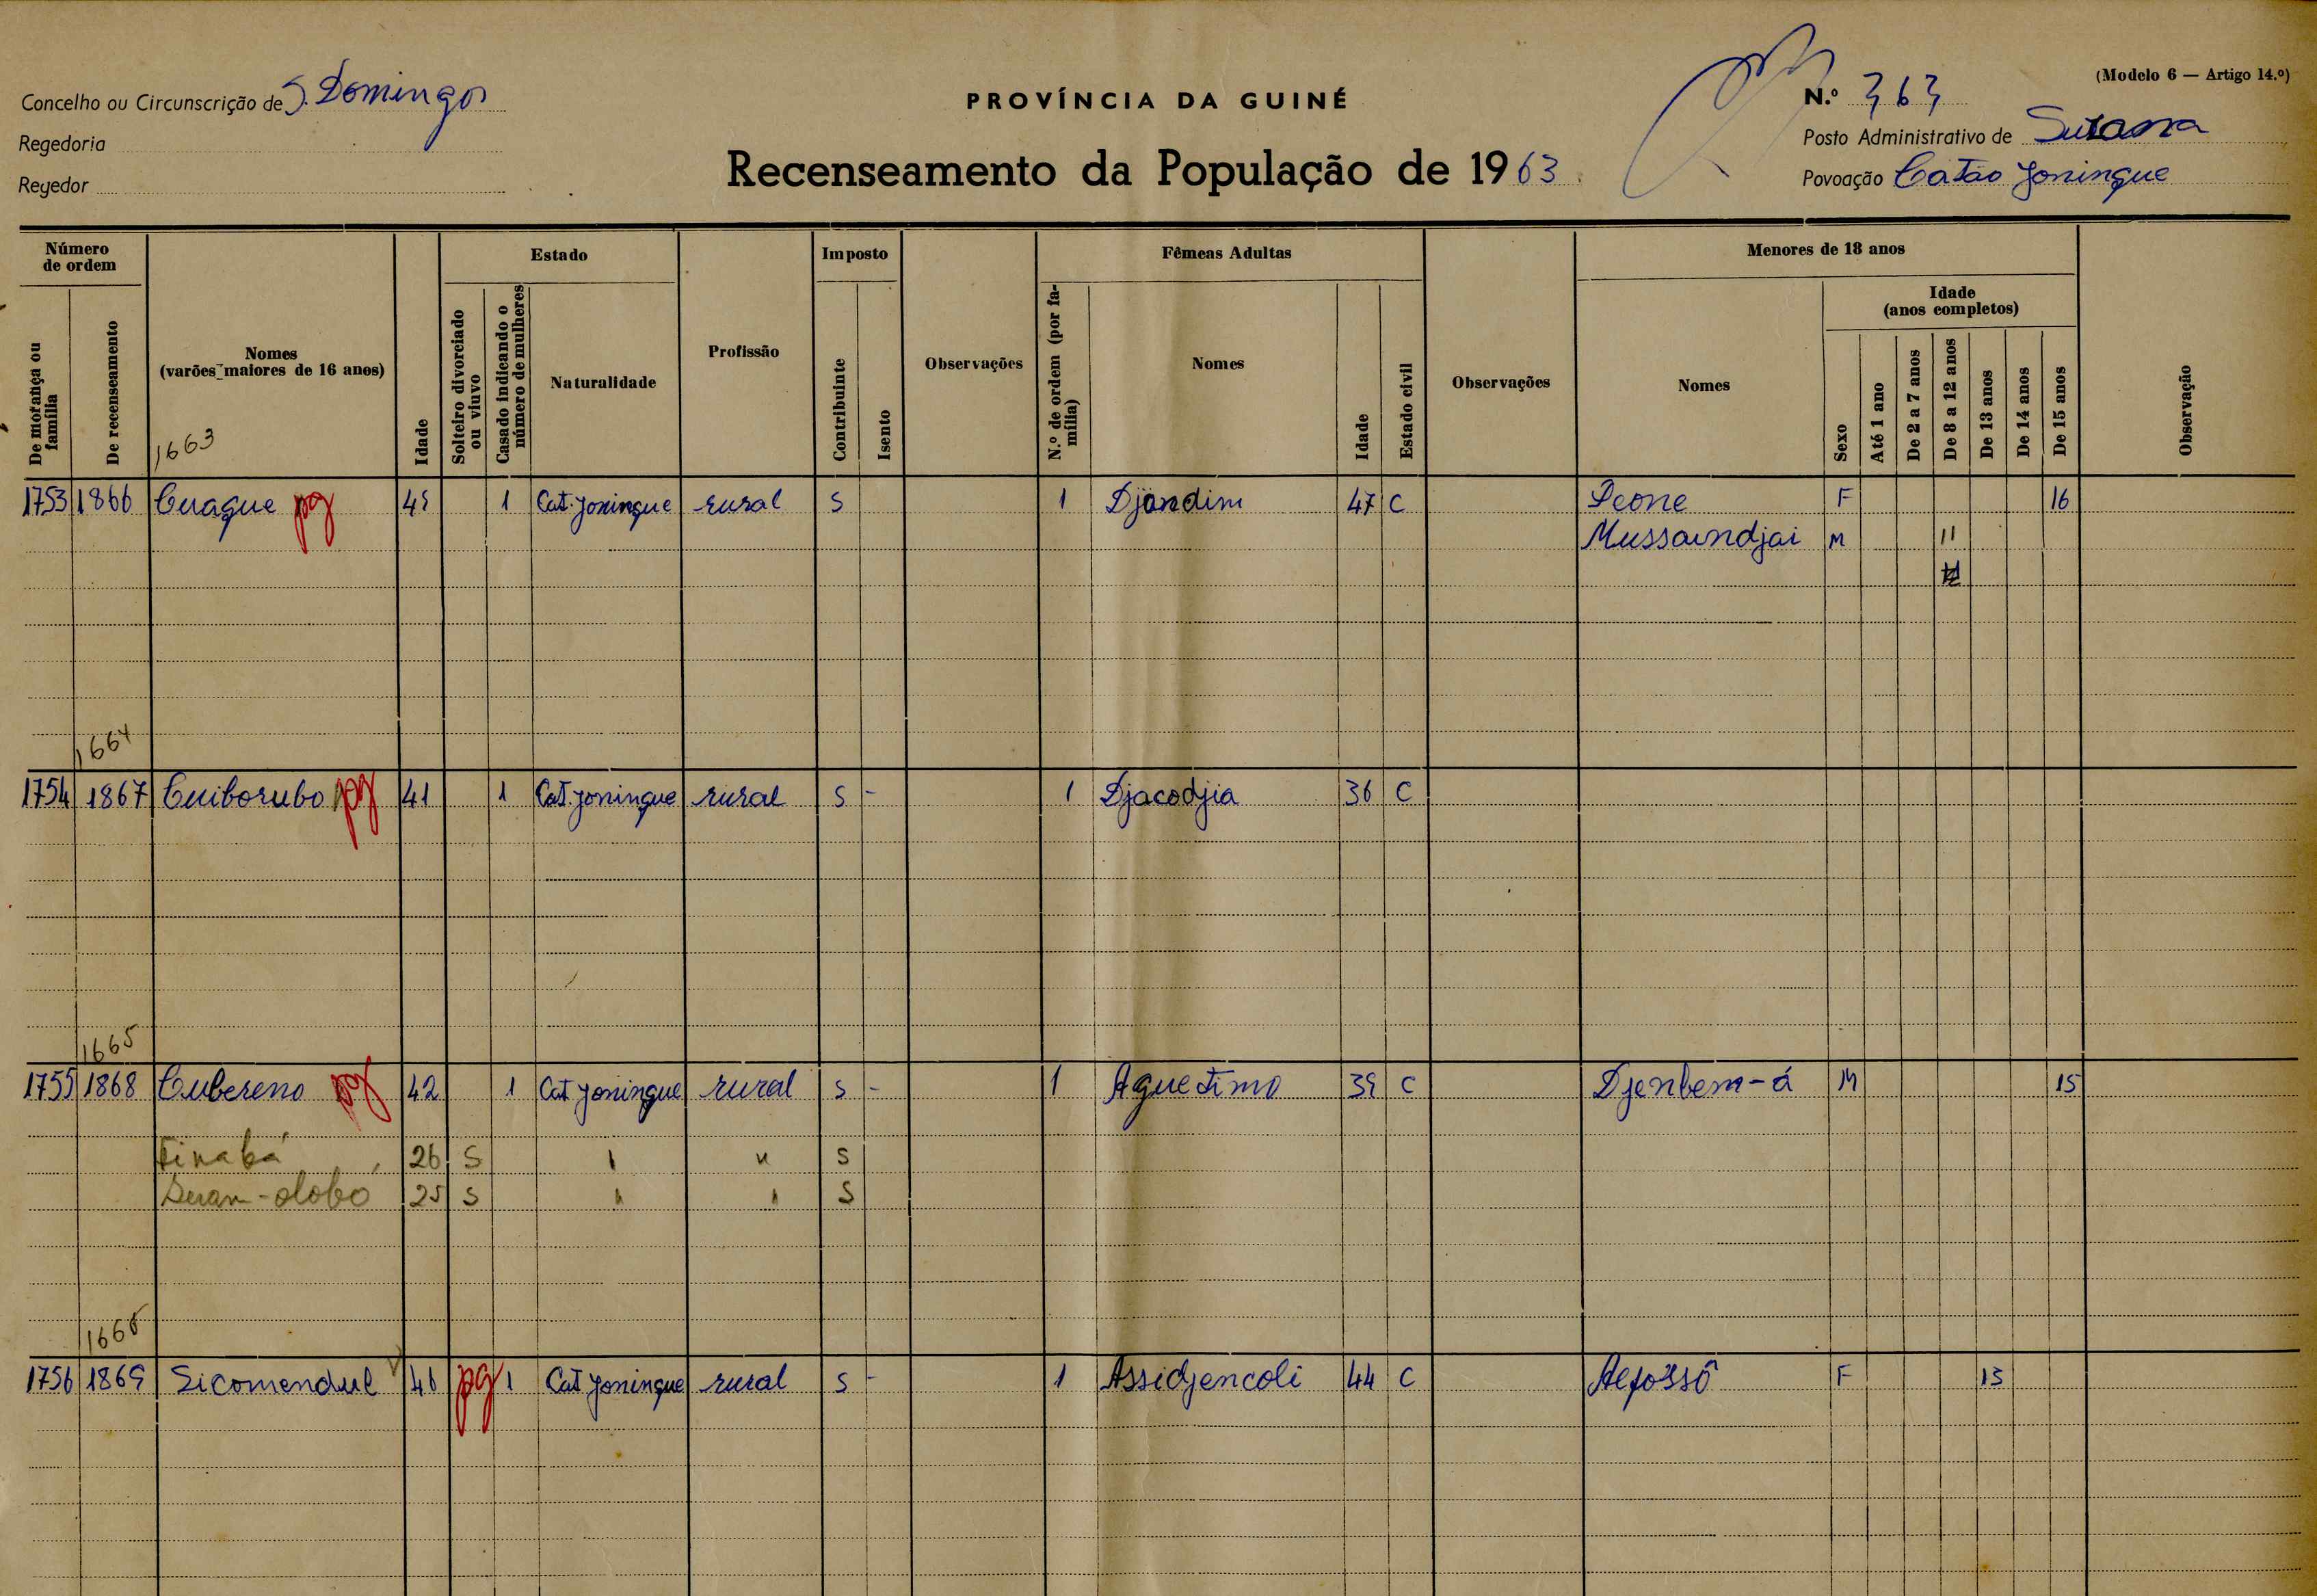 (Modelo 6 — Artigo 14.º)
Concelho ou Circunscrição de S. Domingos
PROVÍNCIA DA GUINÉ
N.º 363
Regedoria
Posto Administrativo de Suzana
Regedor
Recenseamento da População de 1963
Povoação Catão Joningue
Número de ordem
Estado
Imposto
Fêmeas Adultas
Menores de 18 anos
Idade (anos completos)
De morança ou família
De recenseamento
Nomes (varões maiores de 16 anos)
Idade
Solteiro divorciado ou viuvo
Casado indicando o número de mulheres
Naturalidade
Profissão
Contribuinte
Isento
Observações
N.º de ordem (por família)
Nomes
Idade
Estado civil
Observações
Nomes
Sexo
Até 1 ano
De 2 a 7 anos
De 8 a 12 anos
De 13 anos
De 14 anos
De 15 anos
Observação
1663
1753 1866 Cuaque pg 45 1 Cat. Joningue rural S 1 Djondim 47 C Peone F 16
Mussaundjai M 11
1664
1754 1867 Cuiborubo pg 41 1 Cat. Joningue rural S - 1 Djacodjia 36 C
1665
1755 1868 Cubereno pg 42 1 Cat Joningue rural S - 1 Aguetimo 39 C Djenbem-á M 15
Finabá 26 S " " S
-olobó 25 S " " S
1666
1756 1869 Sicomendul 46 pg 1 Cat Joningue rural S - 1 Assidjencoli 44 C F 13